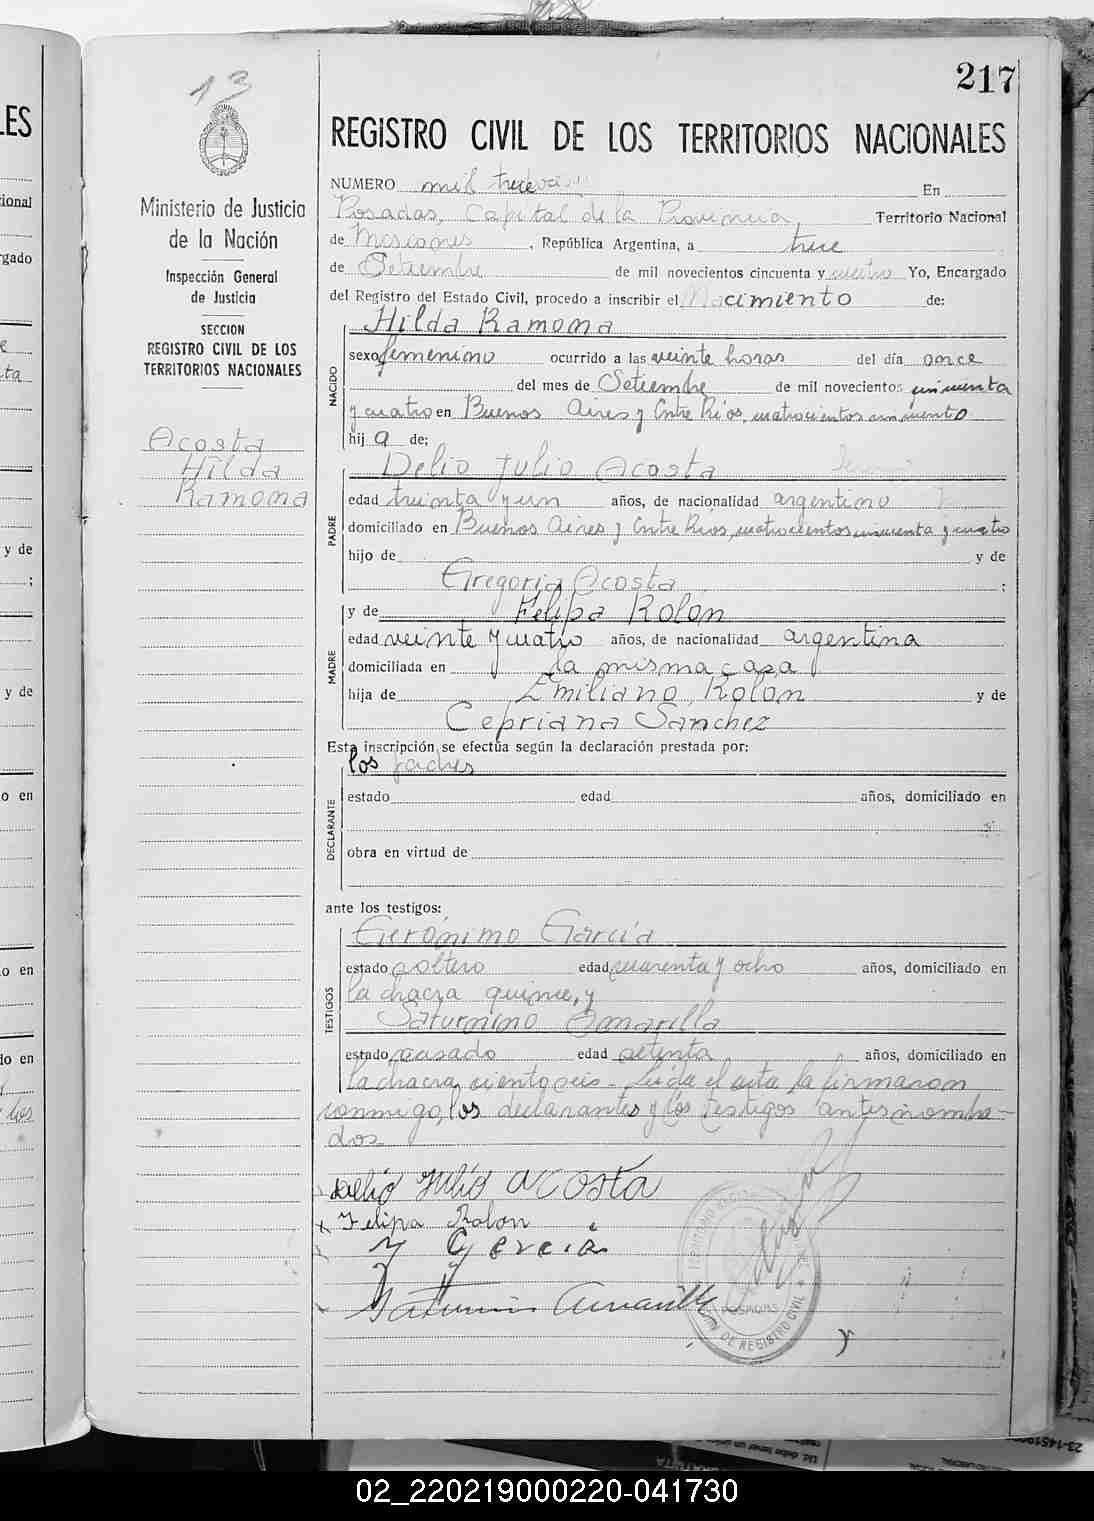 217
13
REGISTRO CIVIL DE LOS TERRITORIOS NACIONALES
Ministerio de Justicia
de la Nación
Inspección General
de Justicia
SECCION
REGISTRO CIVIL DE LOS
TERRITORIOS NACIONALES
Acosta
Hilda
Ramona
NUMERO mil En
Posadas, Capital de la Provincia, Territorio Nacional
de Misiones, República Argentina, a trece
de Setiembre de mil novecientos cincuenta y cuatro Yo, Encargado
del Registro del Estado Civil, procedo a inscribir el Nacimiento de:
NACIDO
Hilda Ramona
sexo femenino ocurrido a las veinte horas del día once
del mes de Setiembre de mil novecientos cincuenta
y cuatro en Buenos Aires y Entre Ríos, cuatrocientos
hij a de;
PADRE
Delio Julio Acosta
edad treinta y un años, de nacionalidad argentino
domiciliado en Buenos Aires y Entre Ríos, cuatrocientos cincuenta y cuatro
hijo de y de
Gregoria Acosta ;
MADRE
y de Felipa Rolon
edad veinte y cuatro años, de nacionalidad argentina
domiciliada en la misma casa
hija de Emiliano Rolon y de
Cepriana Sanchez
Esta inscripción se efectúa según la declaración prestada por:
DECLARANTE
los padres
estado edad años, domiciliado en
obra en virtud de
ante los testigos:
TESTIGOS
Gerónimo García
estado soltero edad cuarenta y ocho años, domiciliado en
la chacra quince, y
Saturnino Amarilla
estado casado edad setenta años, domiciliado en
la chacra ciento seis - Leída el acta la firmaron
conmigo, los declarantes y los testigos antes nombra-
dos-
Delio Julio Acosta
Felipa Rolon
y Gercia
Saturnino Amarilla
POSADAS
DE REGISTRO CIVIL
02_220219000220-041730